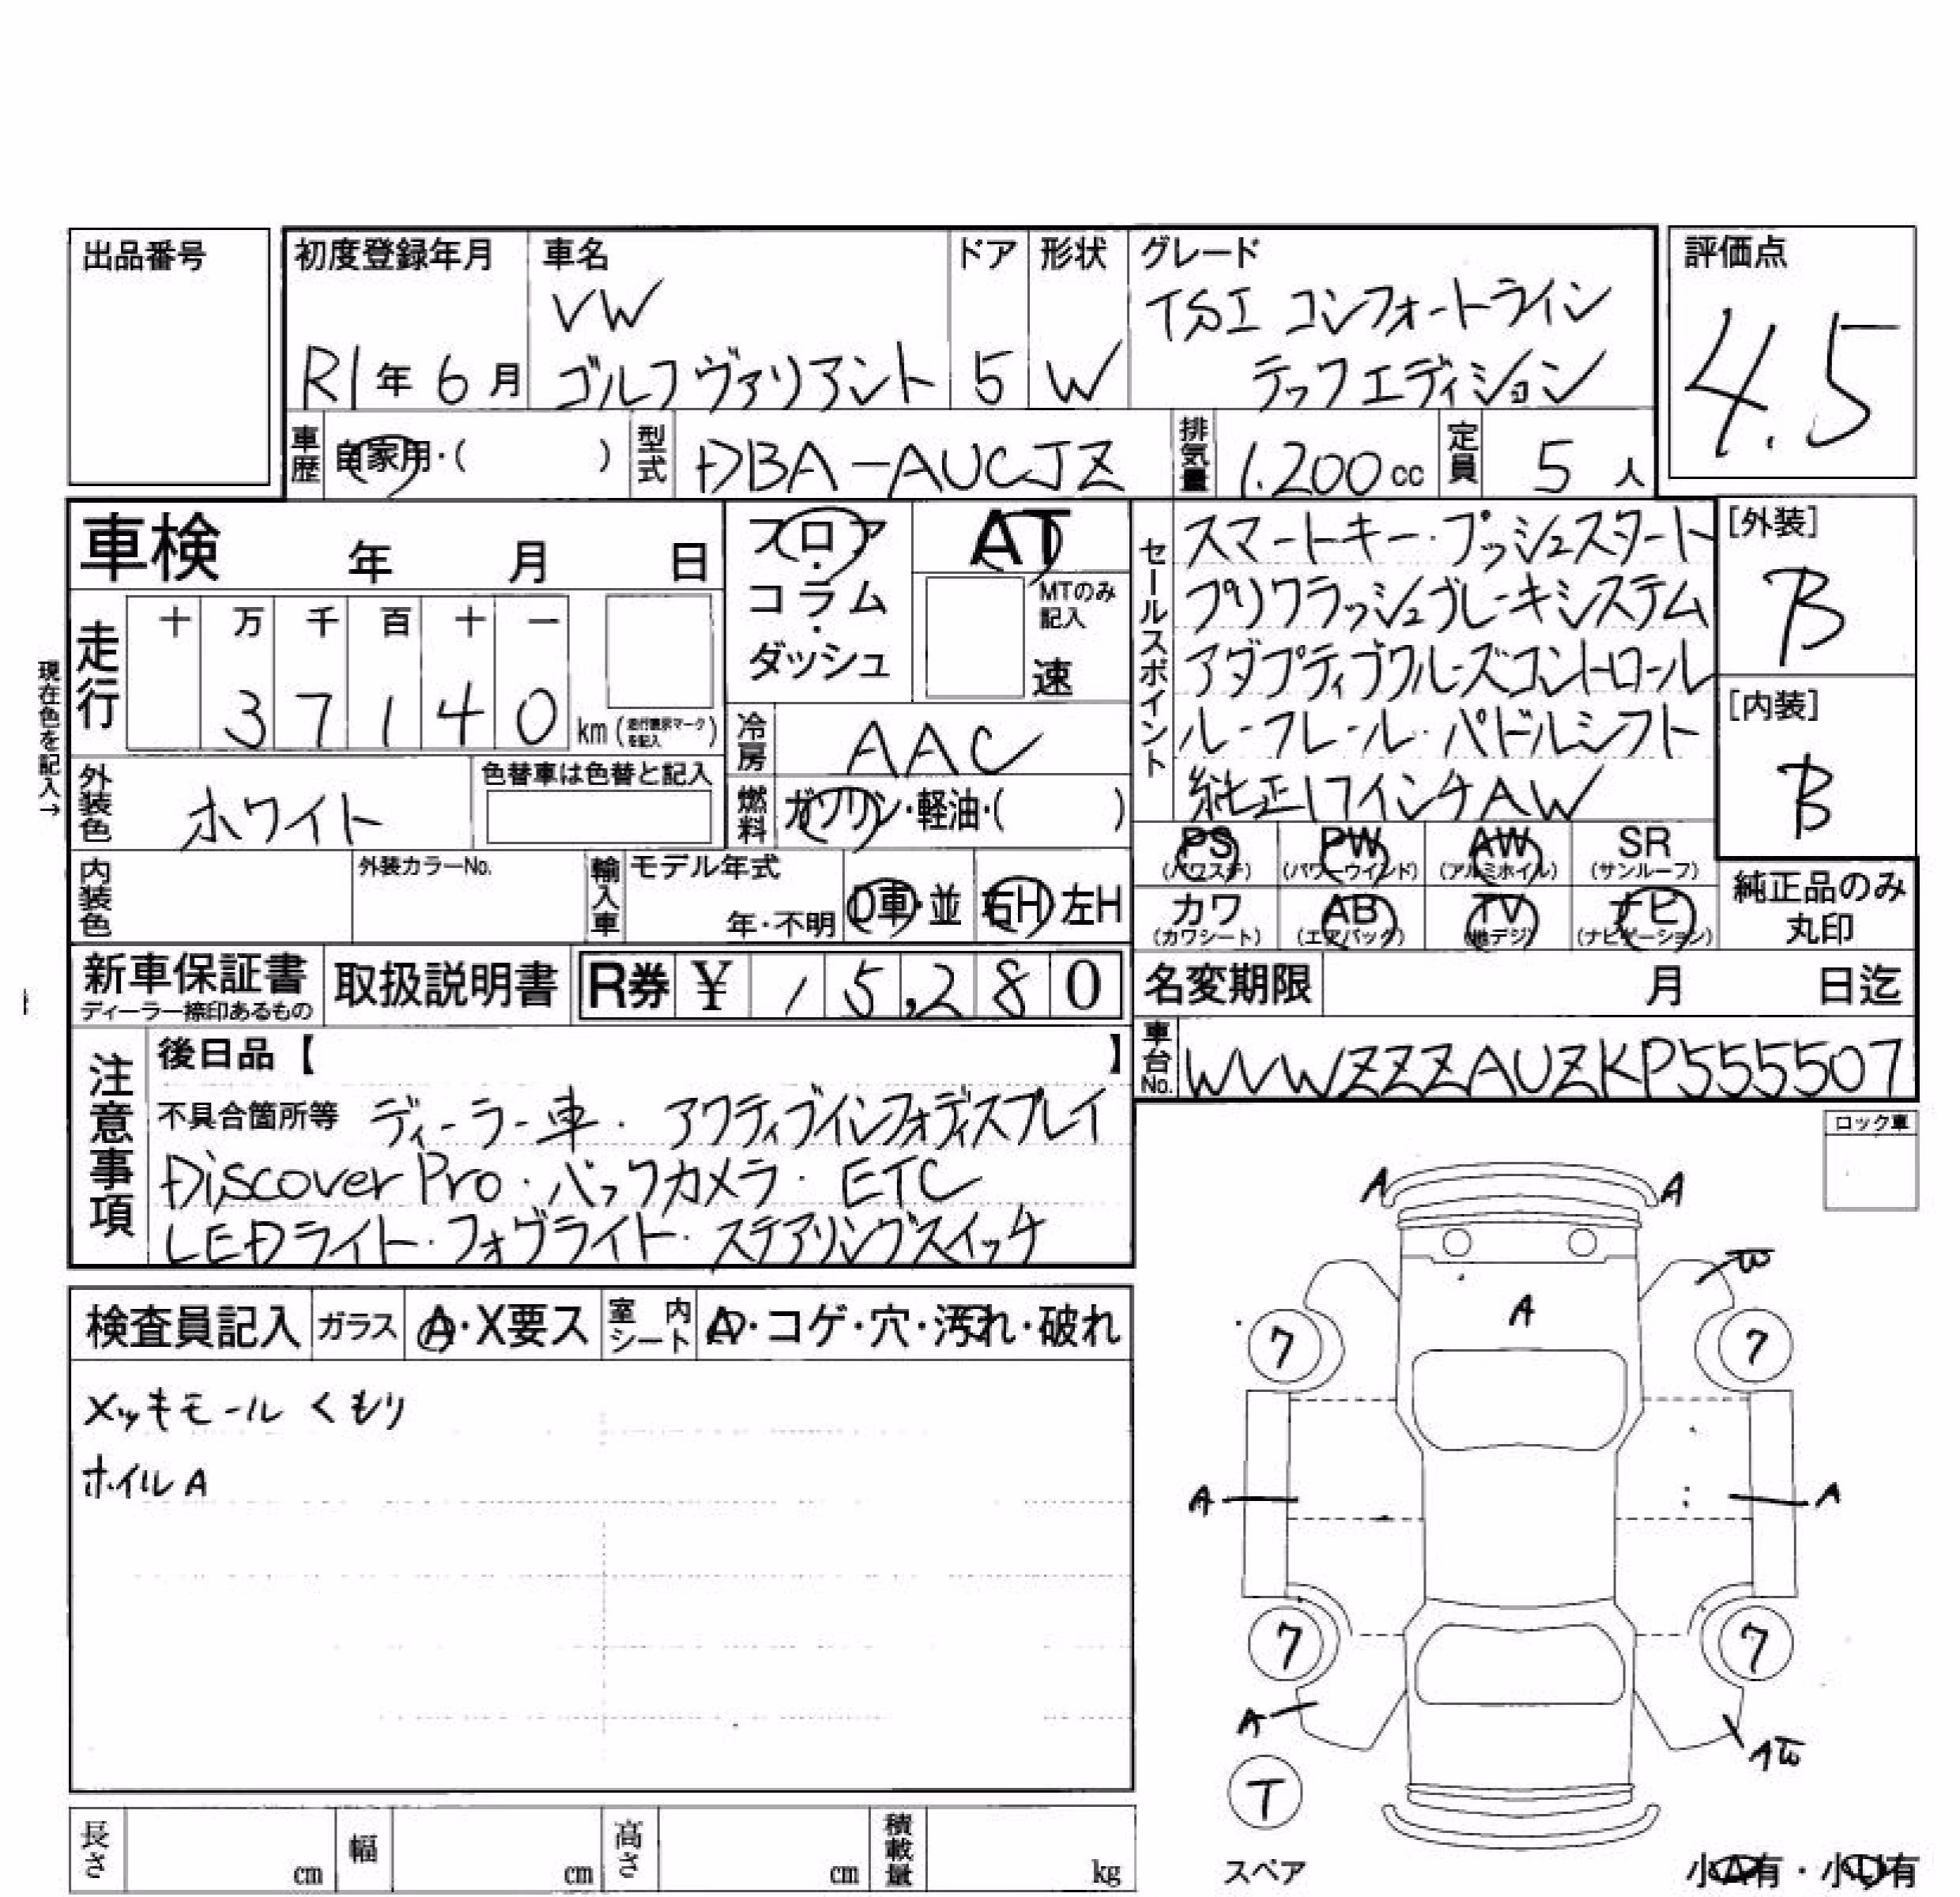 出品番号
初度登録年月
R1年 6月
車名
VW
ゴルフヴァリアント
ドア
5
形状
W
グレード
TSI コンフォートライン
テックエディション
評価点
4.5
車歴
自家用・( )
型式
DBA-AUCJZ
排気量
1.200cc
定員
5人
車検 年 月 日
フロア・コラム・ダッシュ
AT
MTのみ記入
速
走行
十 万 千 百 十 一
3 7 1 4 0 km (走行表示マークを記入)
現在色を記入→
外装色
ホワイト
色替車は色替と記入
冷房
AAC
燃料
ガソリン・軽油・( )
内装色
外装カラーNo.
輸入車
モデル年式
年・不明
D車・並
右H 左H
セールスポイント
スマートキー・プッシュスタート
プリクラッシュブレーキシステム
アダプティブクルーズコントロール
ルーフレール・パドルシフト
純正17インチAW
[外装]
B
[内装]
B
PS (パワステ)
PW (パワーウインド)
AW (アルミホイル)
SR (サンルーフ)
カワ (カワシート)
AB (エアバック)
TV (地デジ)
ナビ (ナビゲーション)
純正品のみ
丸印
新車保証書
ディーラー捺印あるもの
取扱説明書
R券 ¥ 15,280
名変期限 月 日迄
車台No.
WVWZZZAUZKP555507
注意事項
後日品【 】
不具合箇所等 ディーラー車・アクティブインフォディスプレイ
Discover Pro・バックカメラ・ETC
LEDライト・フォグライト・ステアリングスイッチ
ロック車
検査員記入
ガラス
A・X要ス
室内シート
A・コゲ・穴・汚れ・破れ
メッキモール くもり
ホイルA
A A
W
A
7 7
A A
7 7
A
AW
T
スペア
小A有・小U有
長さ cm
幅 cm
高さ cm
積載量 kg